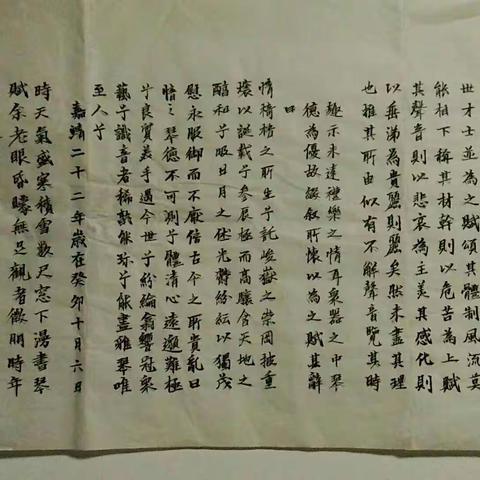 世才士並為之賦頌其體制風流莫
能相下稱其材幹則以危苦為上賦
其聲音則以悲哀為主美其感化則
以垂涕為貴麗則麗矣然未盡其理
也推其所由似有不解聲音覽其時
趣示未達禮樂之情耳衆器之中琴
德為優故綴叙所懷以為之賦其辭
曰
情椅梧之所生兮託峻嶽之崇岡披重
壤以誕載兮參辰極而高驤含天地之
醇和兮吸日月之休光鬱紛紜以獨茂
慰永服御而不厭信古今之所貴亂曰
愔々琴德不可測兮體清心遠邈難極
兮良質美手遇今世兮紛綸翕響冠衆
藝兮識音者稀孰能珍兮能盡雅琴唯
至人兮
嘉靖二十二年歲在癸卯十月六日
時天氣盛寒積雪數尺窓下漫書琴
賦余老眼昏曚無足觀者徵明時年